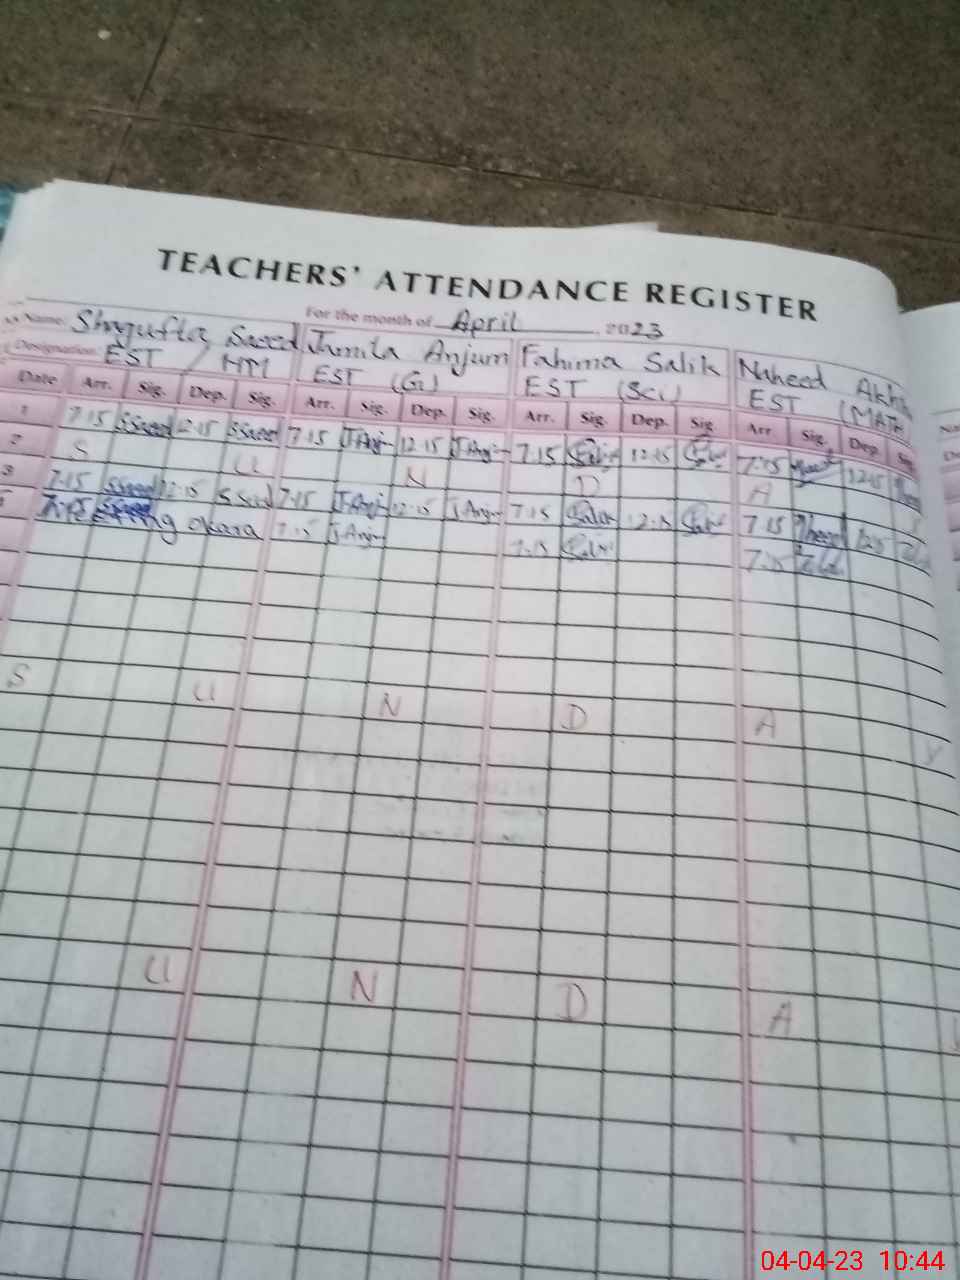 TEACHERS' ATTENDANCE REGISTER
For the month of April 2023
Name: Shagufta Saeed Jamila Anjum Fahima Salik Naheed
Designation: EST / HM EST (G) EST (Sci) EST (MATH
Date Arr. Sig. Dep. Sig. Arr. Sig. Dep. Sig. Arr. Sig. Dep. Sig. Arr. Sig. Dep.
1 7.15 SSaeed 12.15 SSaeed 7.15 J.Anj 12.15 J.Anj 7.15 12.15 7.15 12.15
2 S U N D A
3 7.15 SSaeed 12.15 SSaeed 7.15 J.Anj 12.15 J.Anj 7.15 12.15 7.15
Meeting okara 7.15 J.Anj 7.15 7.15
S U N D A Y
U N D A
04-04-23 10:44